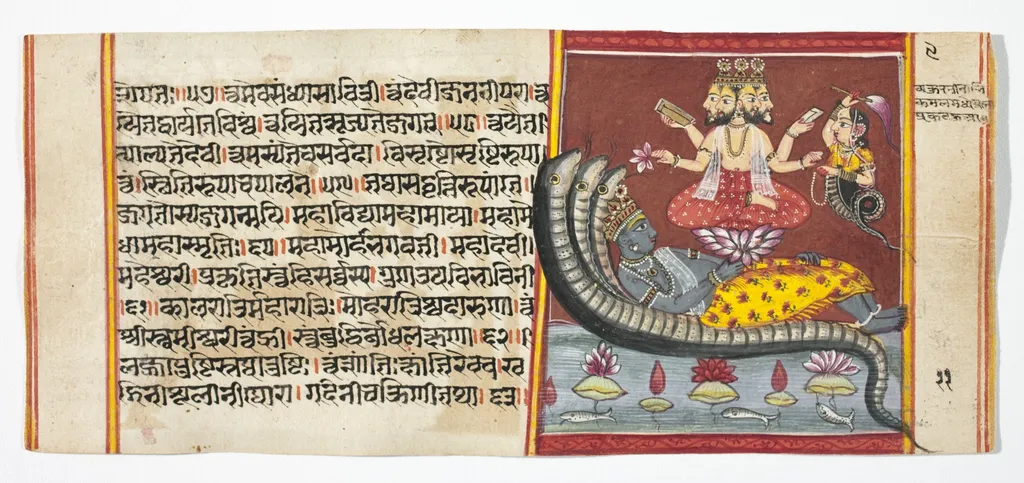 ॥५७॥ त्वमेवसंध्यासावित्री। त्वंदेवीजननीपरा। त्व
यैतद्धार्यतेविश्वं। त्वयैतत्सृज्यतेजगत्॥५८॥ त्वयैत
त्पाल्यतेदेवी। त्वमत्स्यंतेचसर्वदा। विसृष्टौसृष्टिरूपा
त्वं। स्थितिरूपाचपालने॥५९॥ तथासंहृतिरूपांते।
जगतोस्यजगन्मये। महाविद्यामहामाया। महामे
धामहास्मृतिः।६०। महामोहाचभवती। महादेवी।
महेश्वरी। प्रकृतिस्त्वंहिसर्वस्य। गुणत्रयविभाविनी
।६१। कालरात्रिर्महारात्रिः। मोहरात्रिश्चदारुणा। त्वं
श्रीस्त्वमीश्वरीत्वंह्री। स्त्वंबुद्धिर्बोधलक्षणा।६२।
लज्जापुष्टिस्तथातुष्टिः। त्वंशांतिःक्षांतिरेवच। ख
ड्गिनीशूलिनीघोरा। गदिनीचक्रिणीतथा।६३।
११